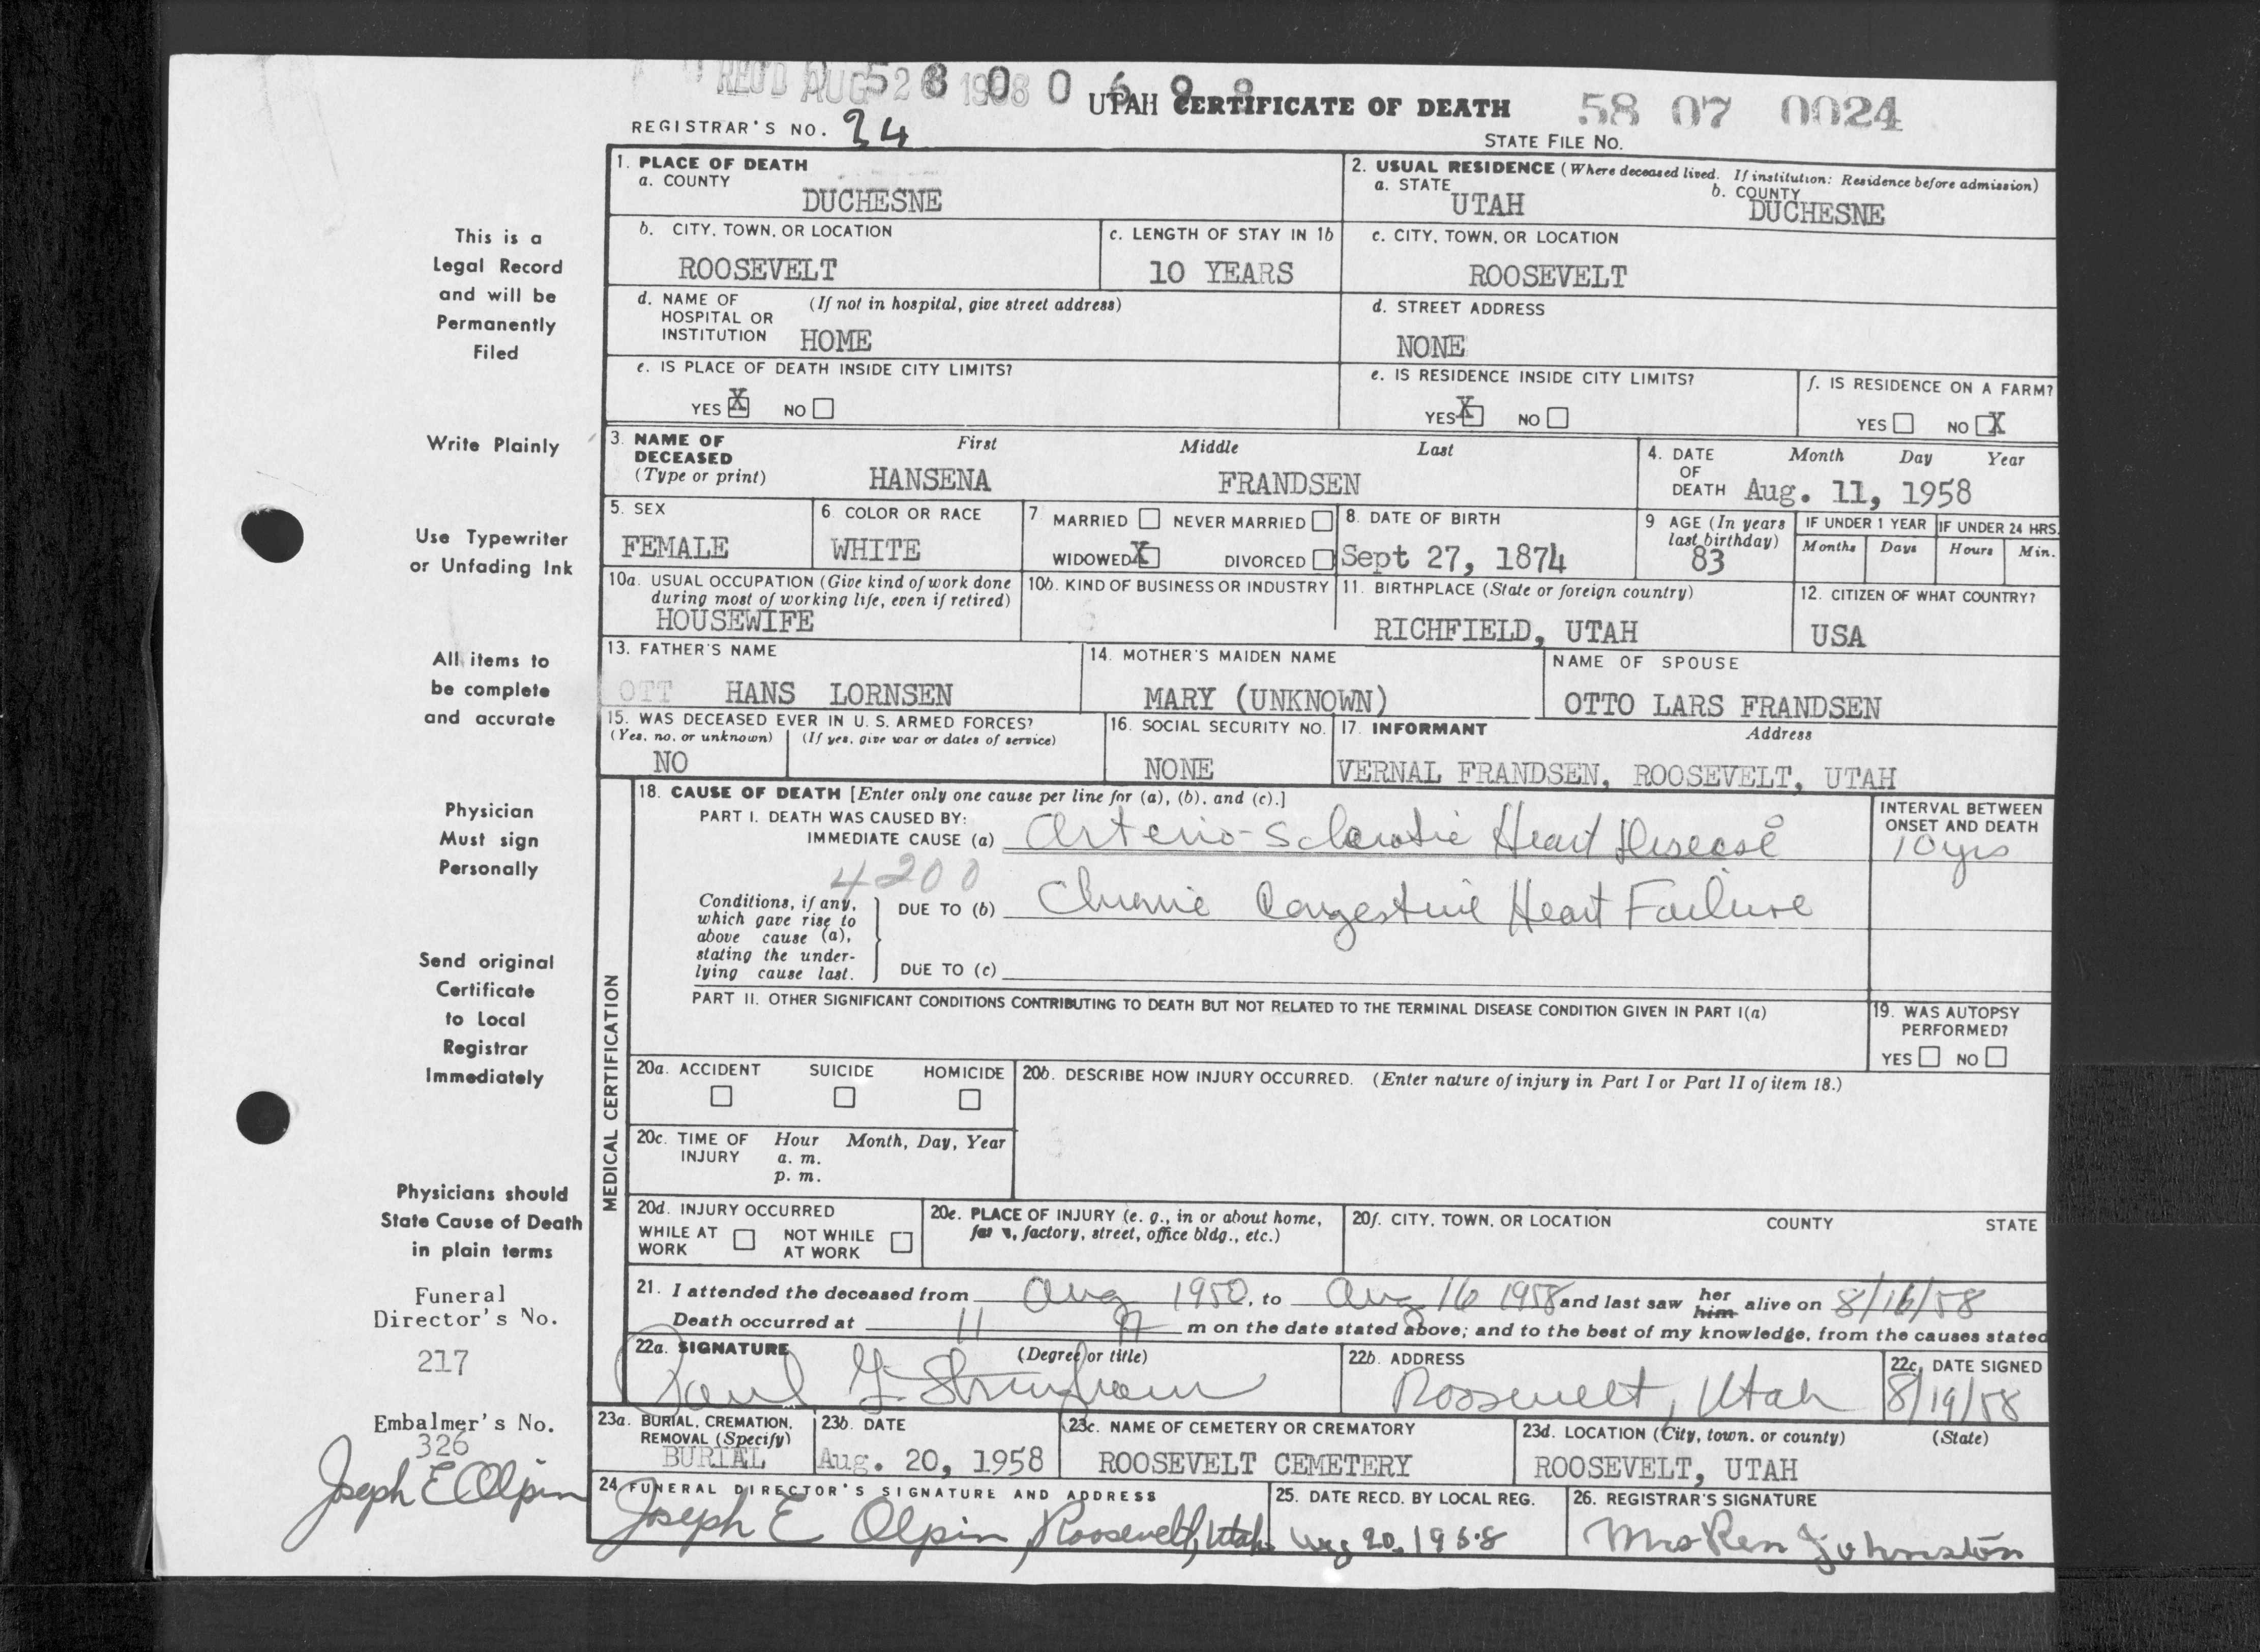 REC'D AUG 26 1958
58 0 0 6
UTAH CERTIFICATE OF DEATH
58 07 0024
REGISTRAR'S NO. 24
STATE FILE NO.
1. PLACE OF DEATH
a. COUNTY
DUCHESNE
2. USUAL RESIDENCE (Where deceased lived. If institution: Residence before admission)
a. STATE UTAH b. COUNTY DUCHESNE
b. CITY, TOWN, OR LOCATION
ROOSEVELT
c. LENGTH OF STAY IN 1b
10 YEARS
c. CITY, TOWN, OR LOCATION
ROOSEVELT
d. NAME OF HOSPITAL OR INSTITUTION (If not in hospital, give street address)
HOME
d. STREET ADDRESS
NONE
e. IS PLACE OF DEATH INSIDE CITY LIMITS?
YES X NO
e. IS RESIDENCE INSIDE CITY LIMITS?
YES X NO
f. IS RESIDENCE ON A FARM?
YES NO X
3. NAME OF DECEASED (Type or print)
First Middle Last
HANSENA FRANDSEN
4. DATE OF DEATH Month Day Year
Aug. 11, 1958
5. SEX
FEMALE
6. COLOR OR RACE
WHITE
7 MARRIED NEVER MARRIED
WIDOWED X DIVORCED
8. DATE OF BIRTH
Sept 27, 1874
9 AGE (In years last birthday)
83
IF UNDER 1 YEAR IF UNDER 24 HRS.
Months Days Hours Min.
10a. USUAL OCCUPATION (Give kind of work done during most of working life, even if retired)
HOUSEWIFE
10b. KIND OF BUSINESS OR INDUSTRY
11. BIRTHPLACE (State or foreign country)
RICHFIELD, UTAH
12. CITIZEN OF WHAT COUNTRY?
USA
13. FATHER'S NAME
OTT HANS LORNSEN
14. MOTHER'S MAIDEN NAME
MARY (UNKNOWN)
NAME OF SPOUSE
OTTO LARS FRANDSEN
15. WAS DECEASED EVER IN U. S. ARMED FORCES?
(Yes, no, or unknown) (If yes, give war or dates of service)
NO
16. SOCIAL SECURITY NO.
NONE
17. INFORMANT Address
VERNAL FRANDSEN, ROOSEVELT, UTAH
MEDICAL CERTIFICATION
18. CAUSE OF DEATH [Enter only one cause per line for (a), (b), and (c).]
PART I. DEATH WAS CAUSED BY:
IMMEDIATE CAUSE (a) Arterio-Sclerotic Heart Disease
INTERVAL BETWEEN ONSET AND DEATH
10 yrs
4200
Conditions, if any, which gave rise to above cause (a), stating the underlying cause last.
DUE TO (b) Chronic Congestive Heart Failure
DUE TO (c)
PART II. OTHER SIGNIFICANT CONDITIONS CONTRIBUTING TO DEATH BUT NOT RELATED TO THE TERMINAL DISEASE CONDITION GIVEN IN PART I(a)
19. WAS AUTOPSY PERFORMED?
YES NO
20a. ACCIDENT SUICIDE HOMICIDE
20b. DESCRIBE HOW INJURY OCCURRED. (Enter nature of injury in Part I or Part II of item 18.)
20c. TIME OF INJURY Hour Month, Day, Year
a. m.
p. m.
20d. INJURY OCCURRED
WHILE AT WORK NOT WHILE AT WORK
20e. PLACE OF INJURY (e. g., in or about home, farm, factory, street, office bldg., etc.)
20f. CITY, TOWN, OR LOCATION COUNTY STATE
21. I attended the deceased from Aug 1950, to Aug 16 1958 and last saw her him alive on 8/16/58
Death occurred at 11 P m on the date stated above; and to the best of my knowledge, from the causes stated
22a. SIGNATURE (Degree or title)
Paul G. Stringham
22b. ADDRESS
Roosevelt, Utah
22c. DATE SIGNED
8/19/58
23a. BURIAL, CREMATION, REMOVAL (Specify)
BURIAL
23b. DATE
Aug. 20, 1958
23c. NAME OF CEMETERY OR CREMATORY
ROOSEVELT CEMETERY
23d. LOCATION (City, town, or county) (State)
ROOSEVELT, UTAH
24 FUNERAL DIRECTOR'S SIGNATURE AND ADDRESS
Joseph E Olpin, Roosevelt, Utah
25. DATE RECD. BY LOCAL REG.
Aug 20, 1958
26. REGISTRAR'S SIGNATURE
Mrs Ken Johnston
This is a
Legal Record
and will be
Permanently
Filed
Write Plainly
Use Typewriter
or Unfading Ink
All items to
be complete
and accurate
Physician
Must sign
Personally
Send original
Certificate
to Local
Registrar
Immediately
Physicians should
State Cause of Death
in plain terms
Funeral
Director's No.
217
Embalmer's No.
326
Joseph E Olpin